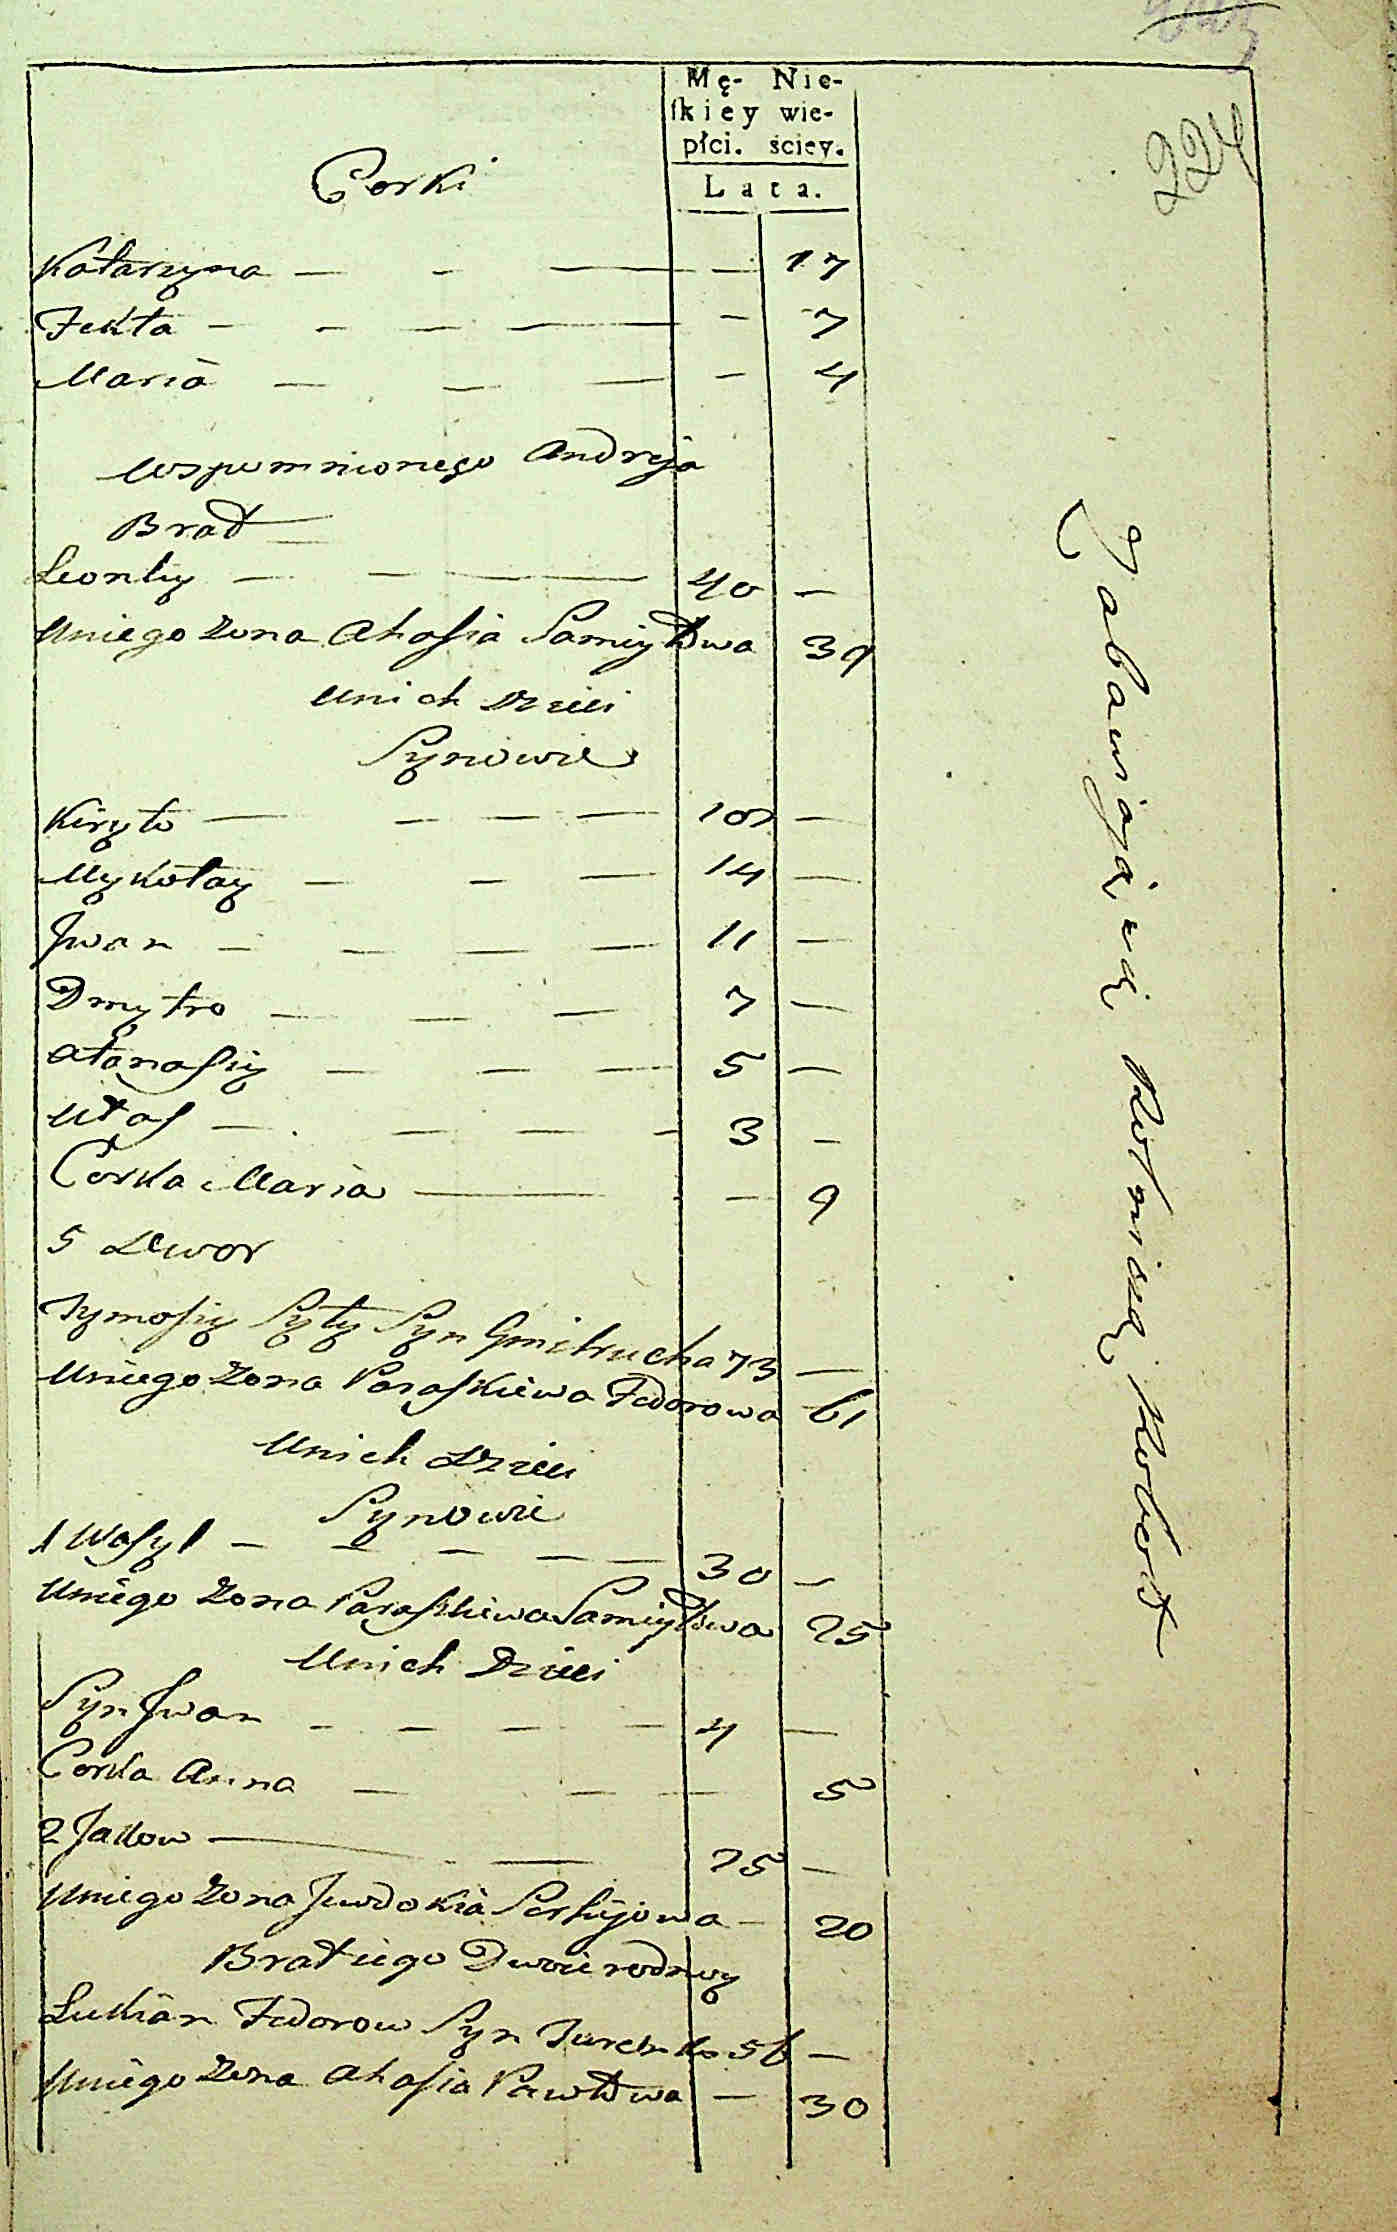 224
Mę- Nie-
skiey wie-
płci. ściey.
Lata.
Corki
Katarzyna — - — — 17
Tekła — - — — - 7
Maria — — — - 4
Wspomnionego Andreja
Brat
Leontiy — — 40 —
Uniego Zona Ahafia Samiyłowa 39
Unich Dzieci
Synowie
Kiryło — — — —
Mykołay — — — 14 —
Jwan — — — — 11 —
Dmytro — — — 7 —
Atanasiy — — — 5 —
Włas — — — — 3 —
Corka Maria — — 9
5 Dwor
Tymofiy Syty Syn 73 —
Uniego Zona Paraskiewa Fedorowa 61
Unich Dzieci
Synowie
1 Wasyl — — — — 30 —
Uniego Zona Paraskiewa Samiyłowa 25
Unich Dzieci
Syn Jwan — — — — 4 —
Corka Anna — — — 5
2 Jakow — — 25 —
Uniego Zona Jewdokia Serhijowa — 20
Brat iego Dwoierodnoy
Łukian Fedorow Syn 56 —
Uniego Zona Ahafia Pawłowa — 30
Zabawiaią się Rolniczą Robotą